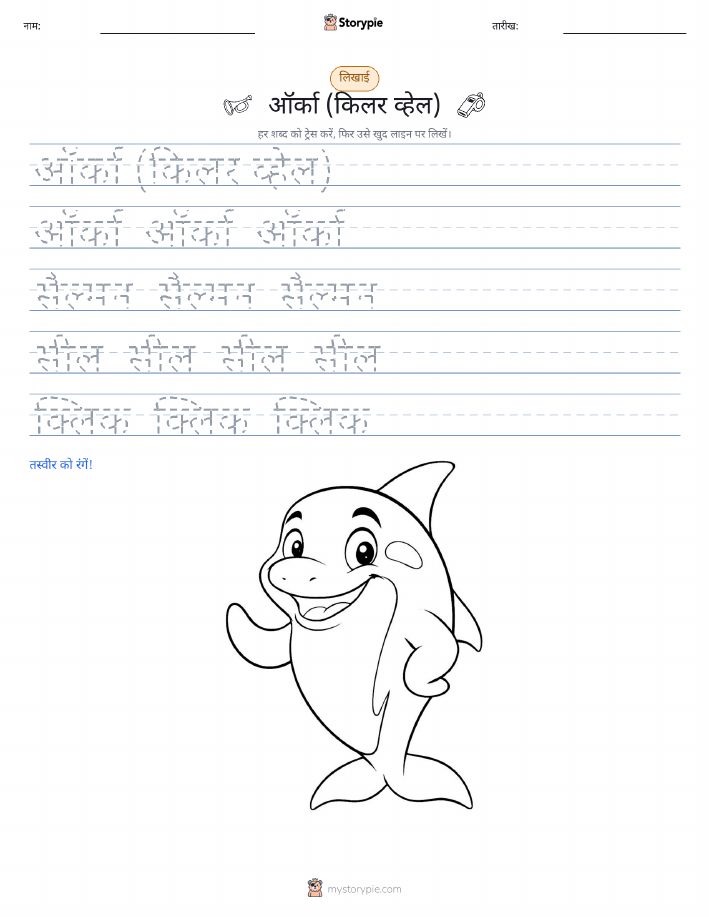 नाम:
Storypie
तारीख:
लिखाई
ऑर्का (किलर व्हेल)
हर शब्द को ट्रेस करें, फिर उसे खुद लाइन पर लिखें।
ऑर्का (किलर व्हेल)
ऑर्का ऑर्का ऑर्का
सैल्मन सैल्मन सैल्मन
सील सील सील सील
क्लिक क्लिक क्लिक
तस्वीर को रंगें!
mystorypie.com